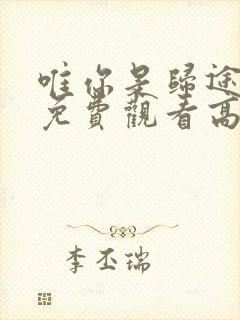 唯你是歸途
免費觀看高
李丕瑞